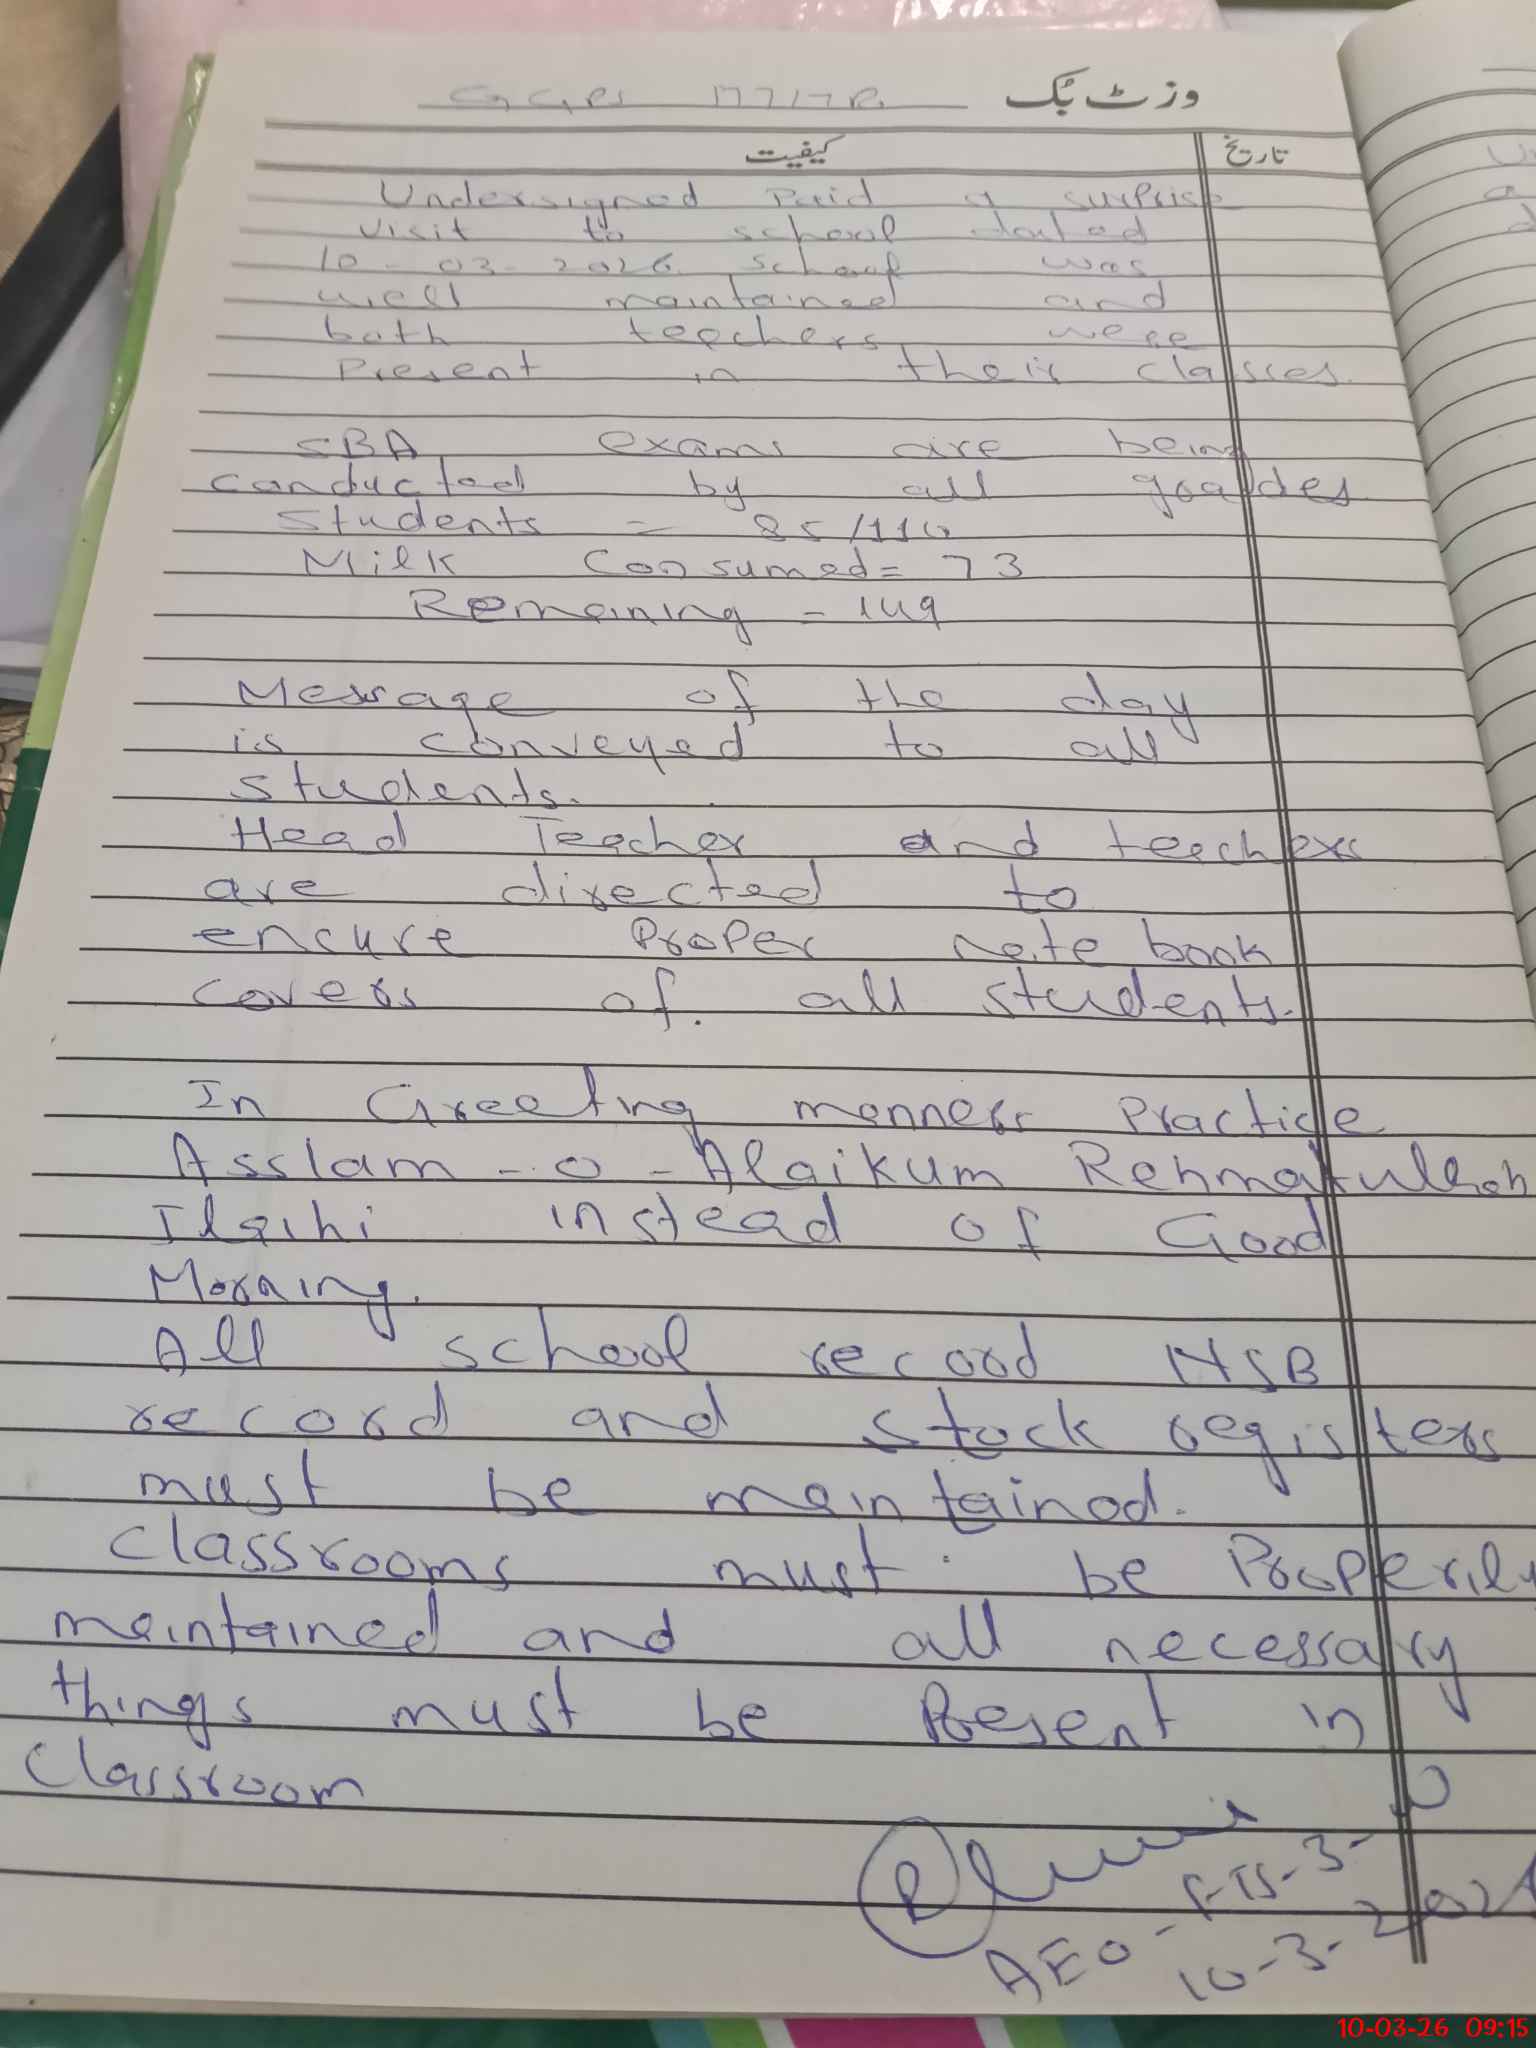 وزٹ بُک GGPS 177/7R
تاریخ کیفیت
Undersigned Paid a surprise
visit to school dated
10-03-2026. School was
well maintained and
both teachers were
Present in their classes.
SBA exams are being
conducted by all goades
Students = 85/110
Milk Consumed = 73
Remaining = 149
Message of the day
is conveyed to all
students.
Head Teacher and teachers
are directed to
encure Proper note book
covers of all students.
In Greeting manners Practice
Asslam-o-Alaikum Rehmatullah
Ilaihi instead of Good
Morning.
All school record NSB
record and stock registers
must be maintained.
Classrooms must be Properily
maintained and all necessary
things must be Present in
Classroom
AEO
10-3-2026
10-03-26 09:15